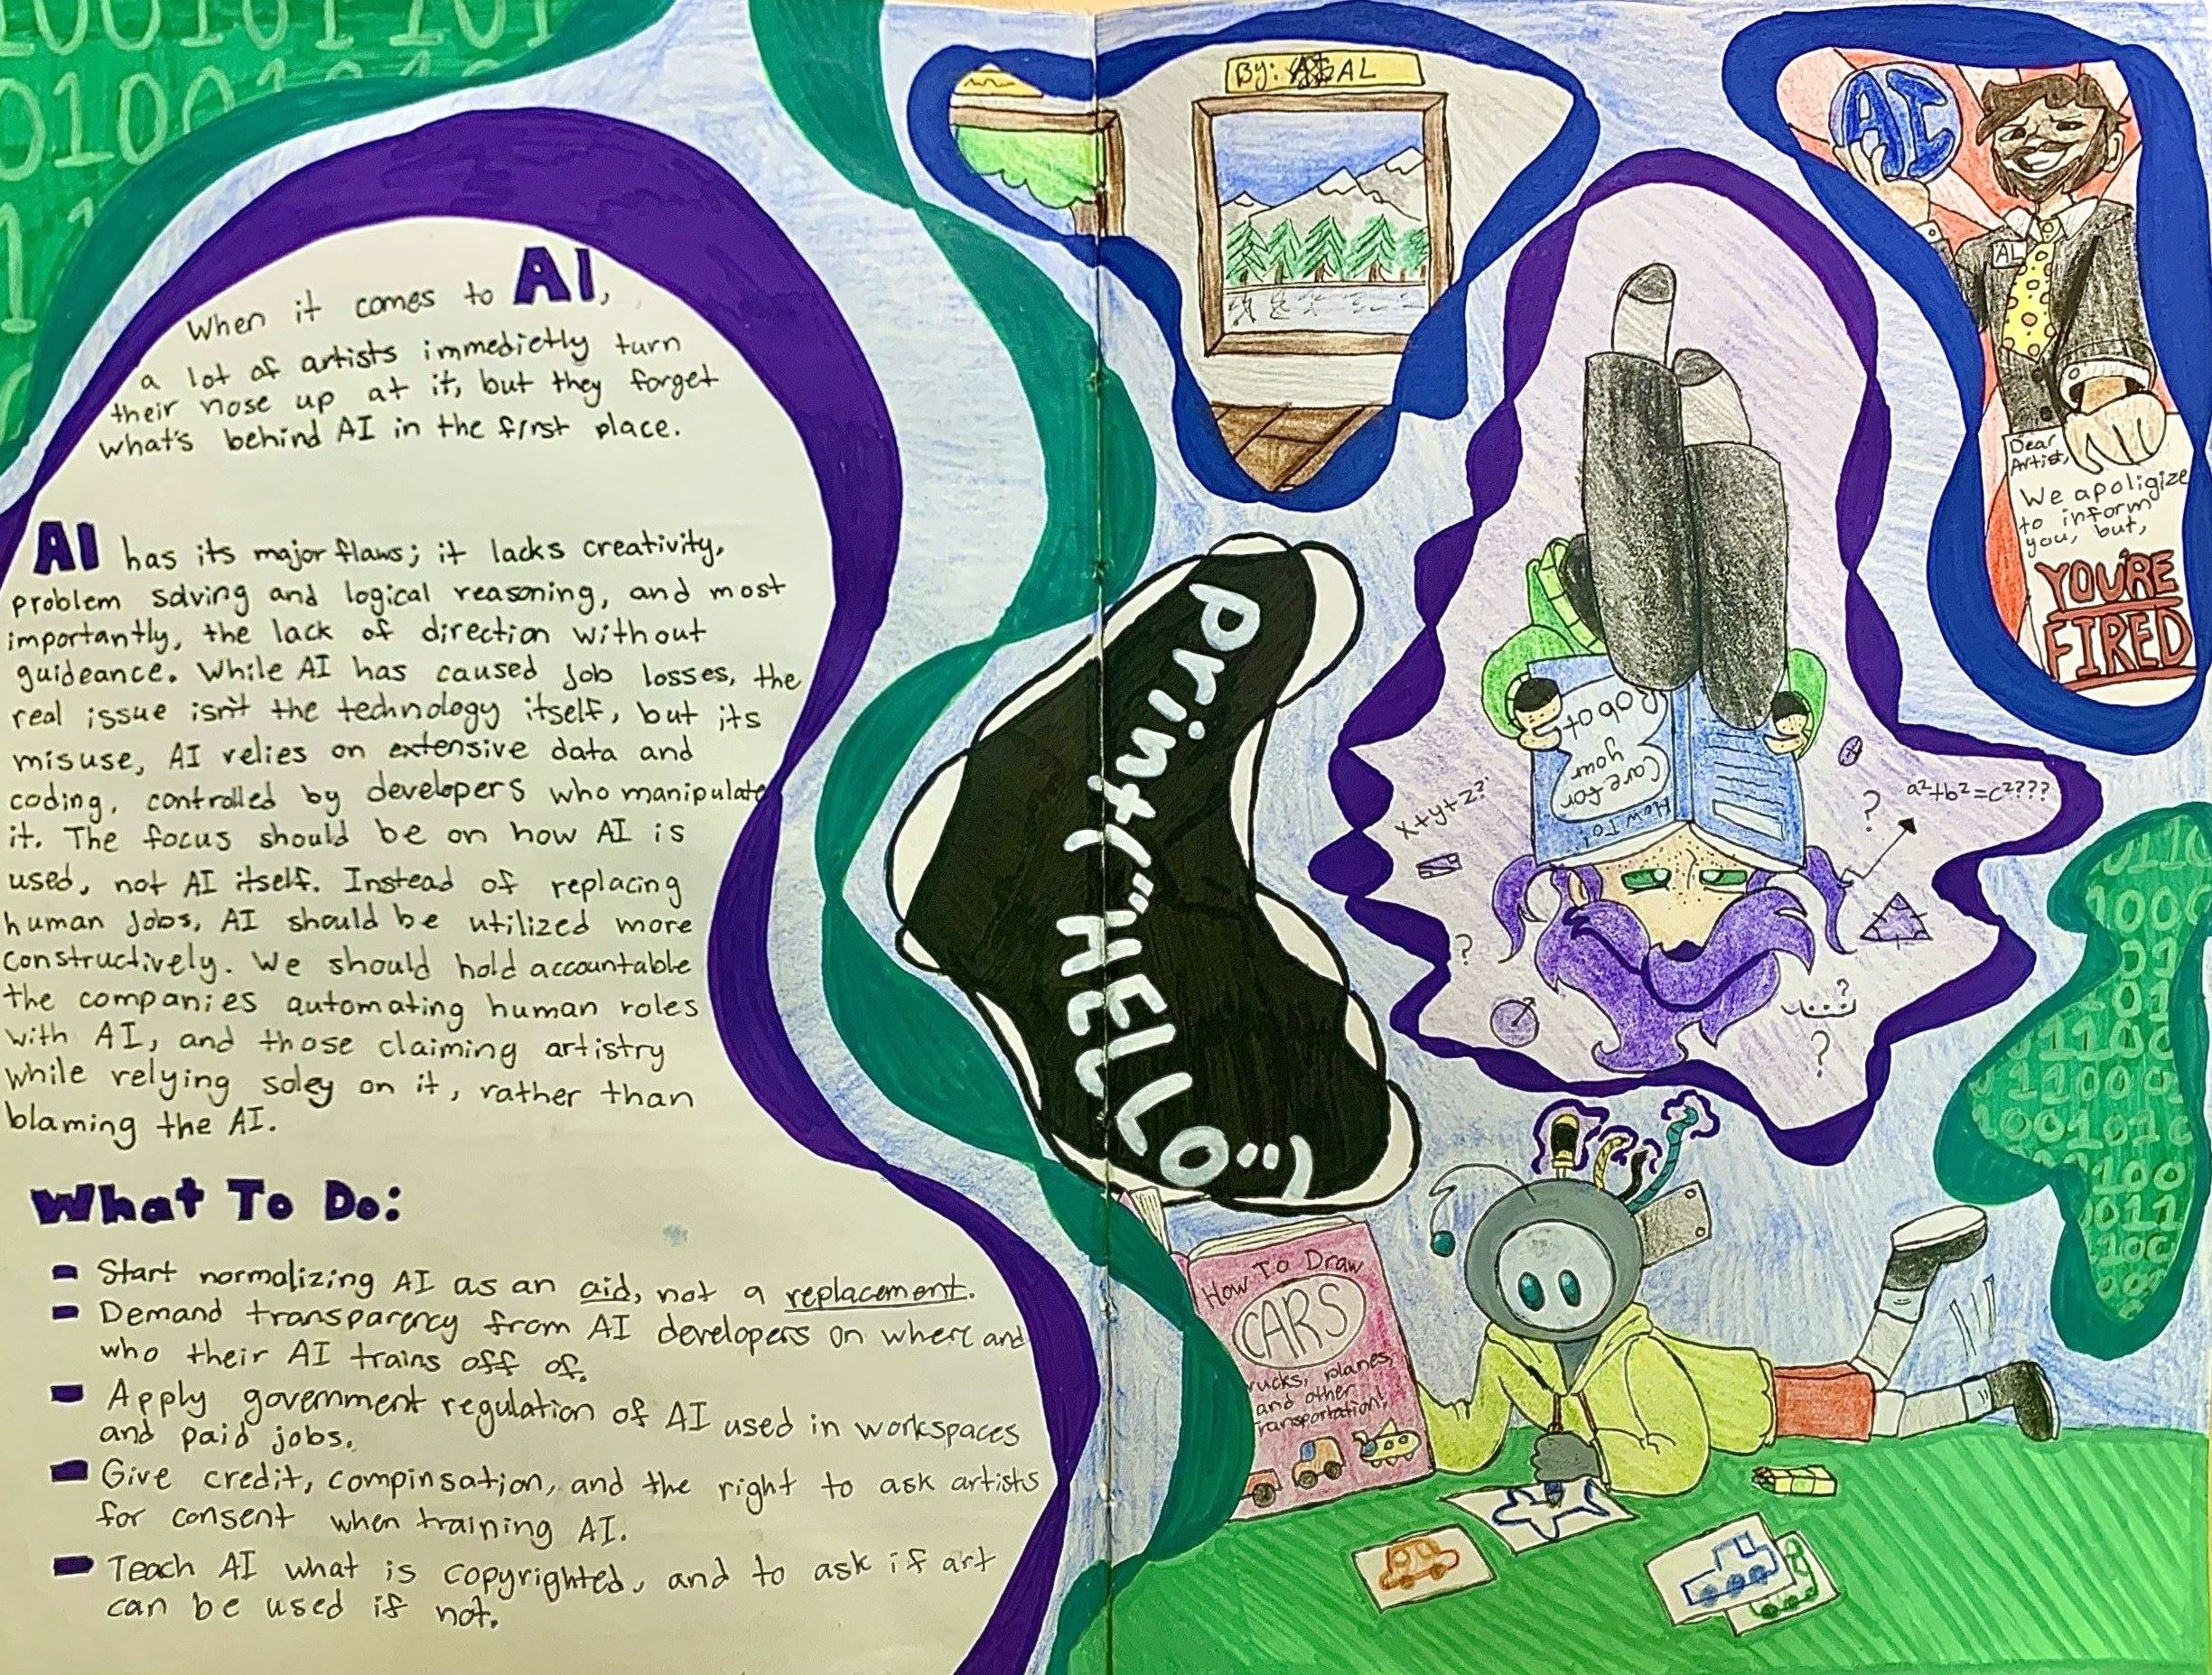 When it comes to AI,
a lot of artists immedietly turn
their nose up at it, but they forget
what's behind AI in the first place.
AI has its major flaws; it lacks creativity,
problem solving and logical reasoning, and most
importantly, the lack of direction without
guideance. While AI has caused job losses, the
real issue isn't the technology itself, but its
misuse, AI relies on extensive data and
coding, controlled by developers who manipulate
it. The focus should be on how AI is
used, not AI itself. Instead of replacing
human jobs, AI should be utilized more
constructively. We should hold accountable
the companies automating human roles
with AI, and those claiming artistry
while relying soley on it, rather than
blaming the AI.
What To Do:
- Start normalizing AI as an aid, not a replacement.
- Demand transparency from AI developers on where and
who their AI trains off of.
- Apply government regulation of AI used in workspaces
and paid jobs.
- Give credit, compinsation, and the right to ask artists
for consent when training AI.
- Teach AI what is copyrighted, and to ask if art
can be used if not.
By: AL
AI
AL
Dear
Artist,
We apoligize
to inform
you, but,
YOU'RE
FIRED
print("HELLO")
How To:
Care for
your
Robot
x+y+z?
a²+b²=c²???
How To Draw
CARS
rucks, planes,
and other
ransportation!